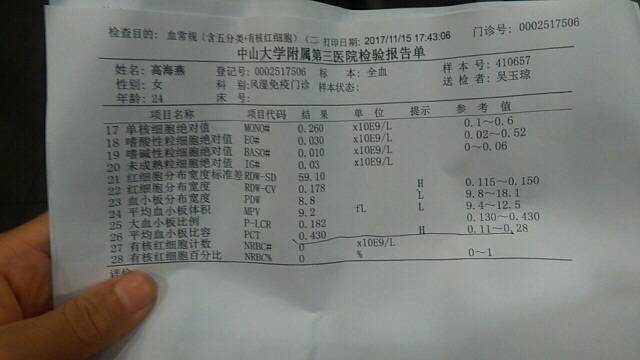 检查目的: 血常规(含五分类+有核红细胞)(二 打印日期: 2017/11/15 17:43:06 门诊号: 0002517506
中山大学附属第三医院检验报告单
姓名: 高海燕 登记号: 0002517506 标 本: 全血 样 本 号: 410657
性别: 女 科 别:风湿免疫门诊 样本状态: 送 检 者: 吴玉琼
年龄: 24 床 号:
项目名称 项目代码 结 果 单 位 提示 参 考 值
17 单核细胞绝对值 MONO# 0.260 x10E9/L 0.1~0.6
18 嗜酸性粒细胞绝对值 EO# 0.030 x10E9/L 0.02~0.52
19 嗜碱性粒细胞绝对值 BASO# 0.010 x10E9/L 0~0.06
20 未成熟粒细胞绝对值 IG# 0.03 x10E9/L
21 红细胞分布宽度标准差 RDW-SD 59.10
22 红细胞分布宽度 RDW-CV 0.178 H 0.115~0.150
23 血小板分布宽度 PDW 8.8 L 9.8~18.1
24 平均血小板体积 MPV 9.2 fL L 9.4~12.5
25 大血小板比例 P-LCR 0.182 0.130~0.430
26 平均血小板比容 PCT 0.430 H 0.11~0.28
27 有核红细胞计数 NRBC# 0 x10E9/L
28 有核红细胞百分比 NRBC% 0 % 0~1
评价